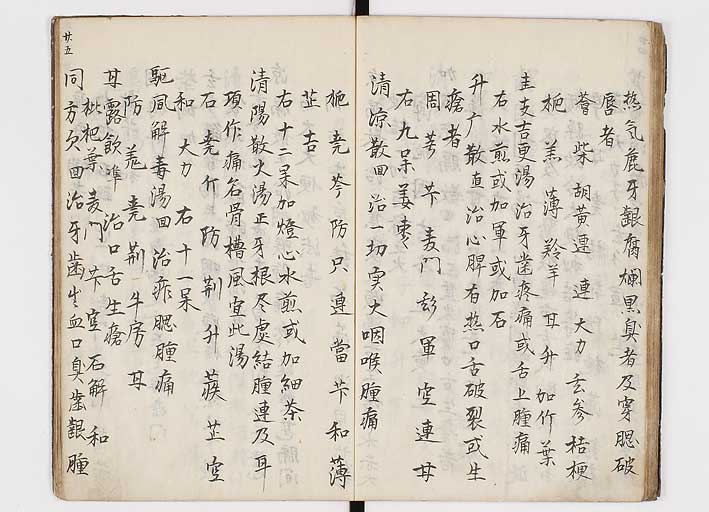 熱気疳牙齦腐爛黒臭者及穿腮破
唇者
薈 柴胡 黄連 連 大力 玄参 桔梗
梔 羔 薄 羚羊 甘 升 加竹葉
圭支吉更湯 治牙歯疼痛或舌上腫痛
右水煎或加軍或加石
升广散 直 治心脾有熱口舌破裂或生
瘡者
周 芳 芐 麦門 彭 軍 空 連 甘
右九呆姜枣
清凉散 回 治一切実火咽喉腫痛
梔 尭 芩 防 只 連 當 芐 和 薄
芷 吉
右十二呆加燈心水煎或加細茶
清陽散火湯 正 牙根尽虚結腫連及耳
項作痛名骨槽風宜此湯
石 尭 介 防 荊 升 蒺 芷 空
和 大力 右十一呆
駈風解毒湯 回 治痄腮腫痛
防 羌 尭 荊 牛房 甘
甘露飲 準 治口舌生瘡
枇杷葉 麦門 芐 空 石解 和
同方 欠 回 治牙歯生血口臭歯齦腫
廿五